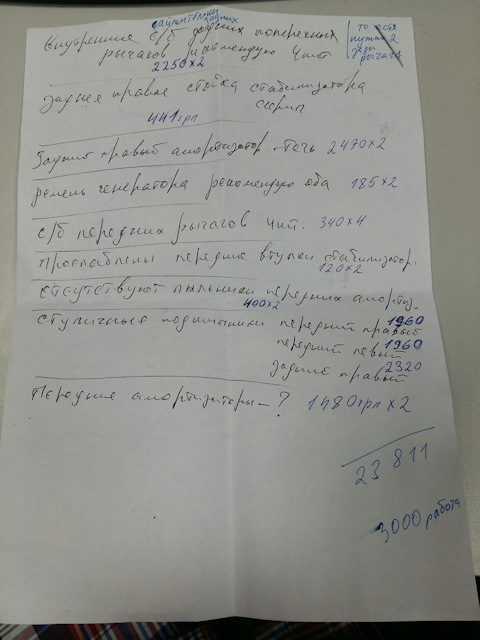 сайлентблоки
задних
Внутренние с/б задних поперечных
рычагов рекомендую 4шт
2250x2
то есть
нужно 2
зад
рычага
Задняя правая стойка стабилизатора
скрип
441грн
Задний правый амортизатор - течь 2470x2
Ремень генератора рекомендую оба 185x2
с/б передних рычагов 4шт. 340x4
Проспаблены передние втулки стабилизатор.
120x2
отсутствуют пыльники передних амортиз_
400x2
ступичные подшипники передний правый 1960
передний левый 1960
задний правый 2320
Передние амортизаторы - ? 1480грн x2
23 811
3000 работа